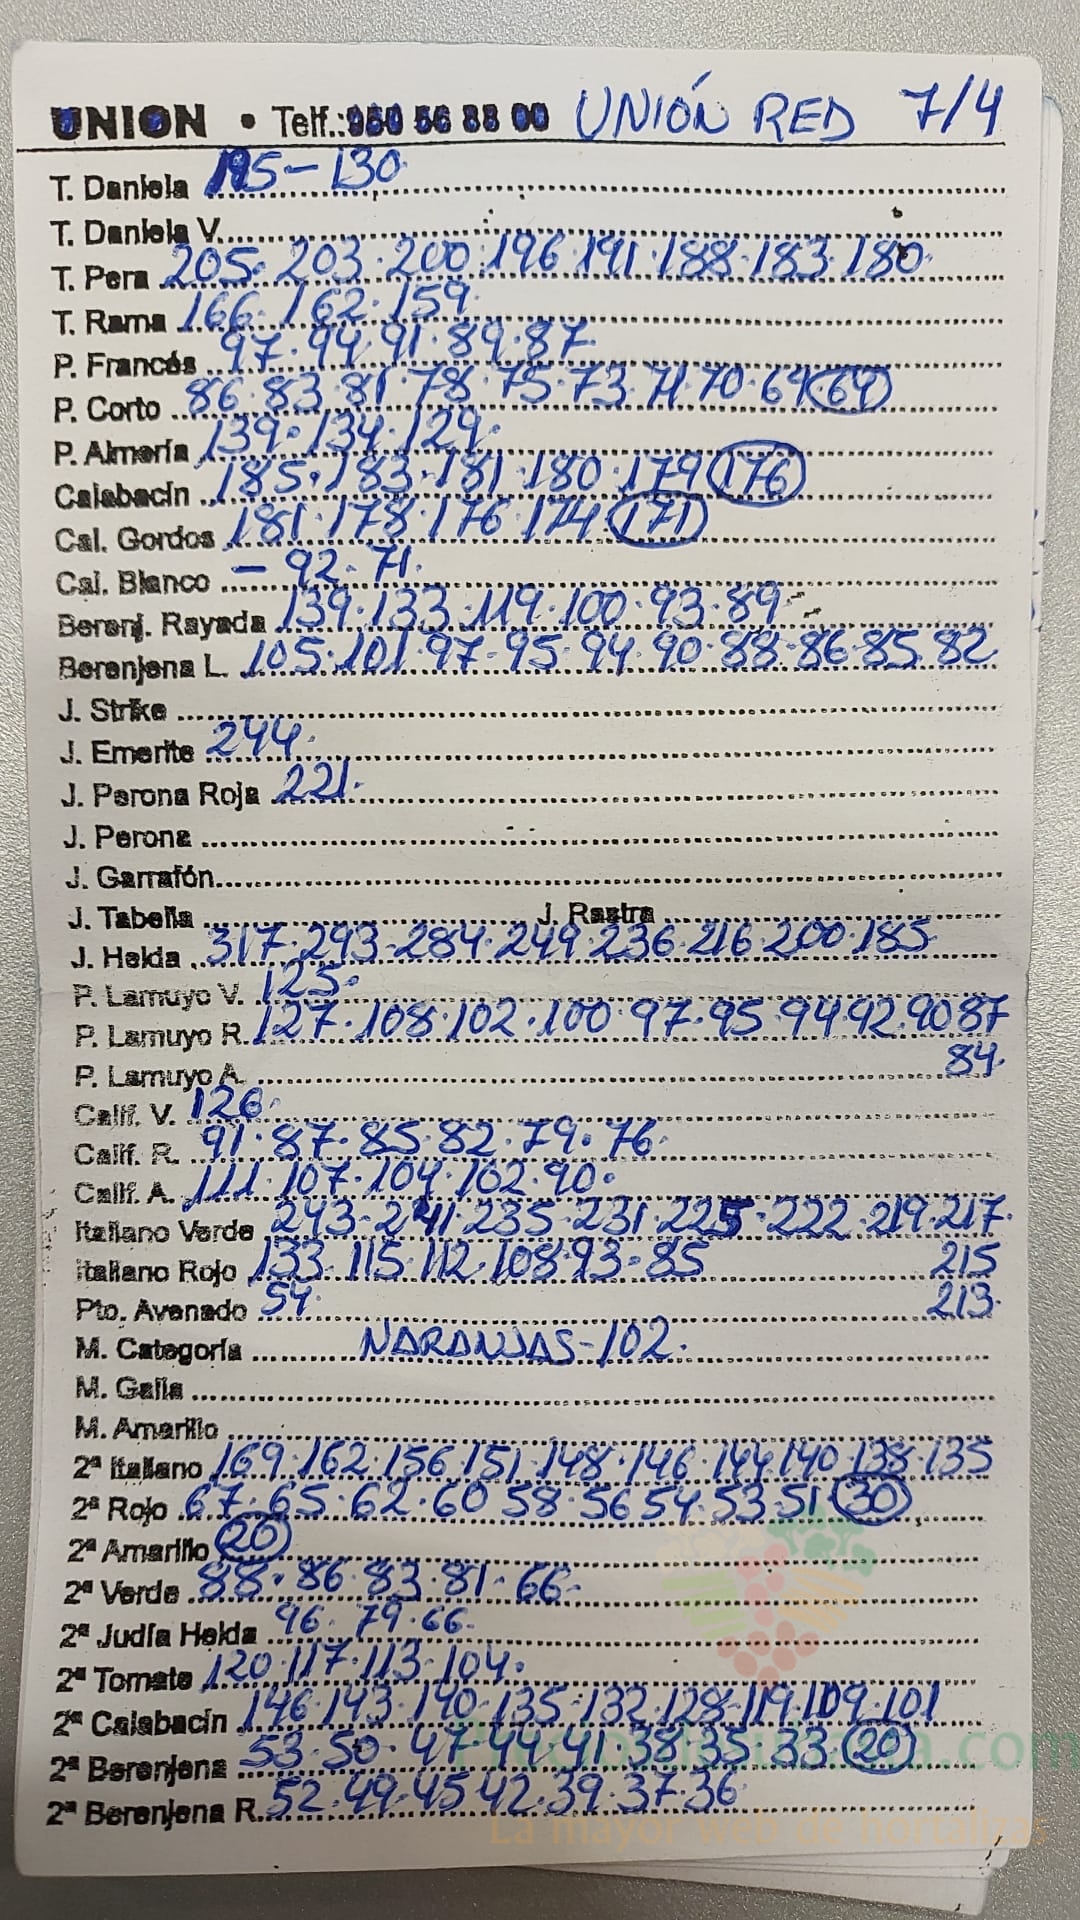 UNION • Telf.:950 56 88 00 UNIÓN RED 7/4
T. Daniela 195-130
T. Daniela V.
T. Pera 205·203·200·196·191·188·183·180
T. Rama 166·162·159
P. Francés 97·94·91·89·87
P. Corto 86·83·81·78·75·73·71·70·64 (64)
P. Almería 139·134·129
Calabacín 185·183·181·180·179 (176)
Cal. Gordos 181·178·176·174 (171)
Cal. Blanco - 92·71
Berenj. Rayada 139·133·119·100·93·89
Berenjena L. 105·101·97·95·94·90·88·86·85·82
J. Strike
J. Emerite 244
J. Perona Roja 221
J. Perona
J. Garrafón
J. Tabella J. Rastra
J. Helda 317·293·284·249·236·216·200·185
P. Lamuyo V. 125
P. Lamuyo R. 127·108·102·100·97·95·94·92·90·87
P. Lamuyo A. 84
Calif. V. 126
Calif. R. 91·87·85·82·79·76
Calif. A. 111·107·104·102·90
Italiano Verde 243·241·235·231·225·222·219·217
Italiano Rojo 133·115·112·108·93·85 215
Pto. Avenado 54 213
M. Categoría NARANJAS-102
M. Galia
M. Amarillo
2ª Italiano 169·162·156·151·148·146·144·140·138·135
2ª Rojo 67·65·62·60·58·56·54·53·51 (30)
2ª Amarillo (20)
2ª Verde 88·86·83·81·66
2ª Judía Helda 96·79·66
2ª Tomate 120·117·113·104
2ª Calabacín 146·143·140·135·132·128·119·109·101
2ª Berenjena 53·50·47·44·41·38·35·33 (20)
2ª Berenjena R. 52·49·45·42·39·37·36
La mayor web de hortalizas